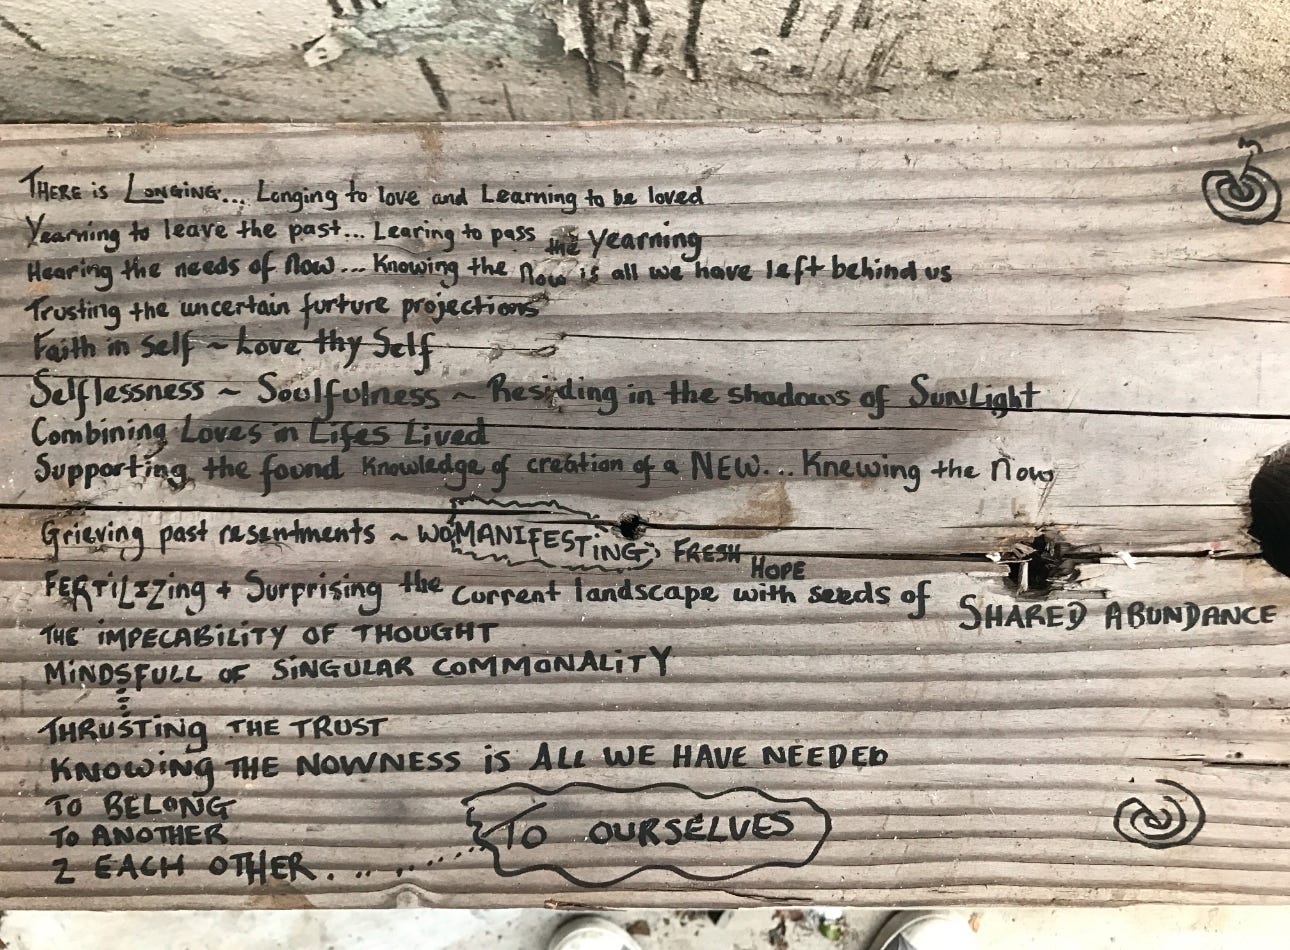 THERE is LONGING... Longing to love and Learning to be loved
Yearning to leave the past... Learing to pass the Yearning
Hearing the needs of Now... Knowing the Now is all we have left behind us
Trusting the uncertain furture projections
Faith in Self ~ Love thy Self
Selflessness ~ Soulfulness ~ Residing in the shadows of SunLight
Combining Loves in Lifes Lived
Supporting the found Knowledge of creation of a NEW... Knewing the Now
Grieving past resentments ~ WOMANIFESTiNG FRESH HOPE
FERTiLIZing + Surprising the current landscape with seeds of SHARED ABUNDANCE
THE IMPECABILITY OF THOUGHT
MINDSFULL OF SINGULAR COMMONALITY
THRUSTING THE TRUST
KNOWING THE NOWNESS is ALL WE HAVE NEEDED
TO BELONG
TO ANOTHER
2 EACH OTHER........ TO OURSELVES